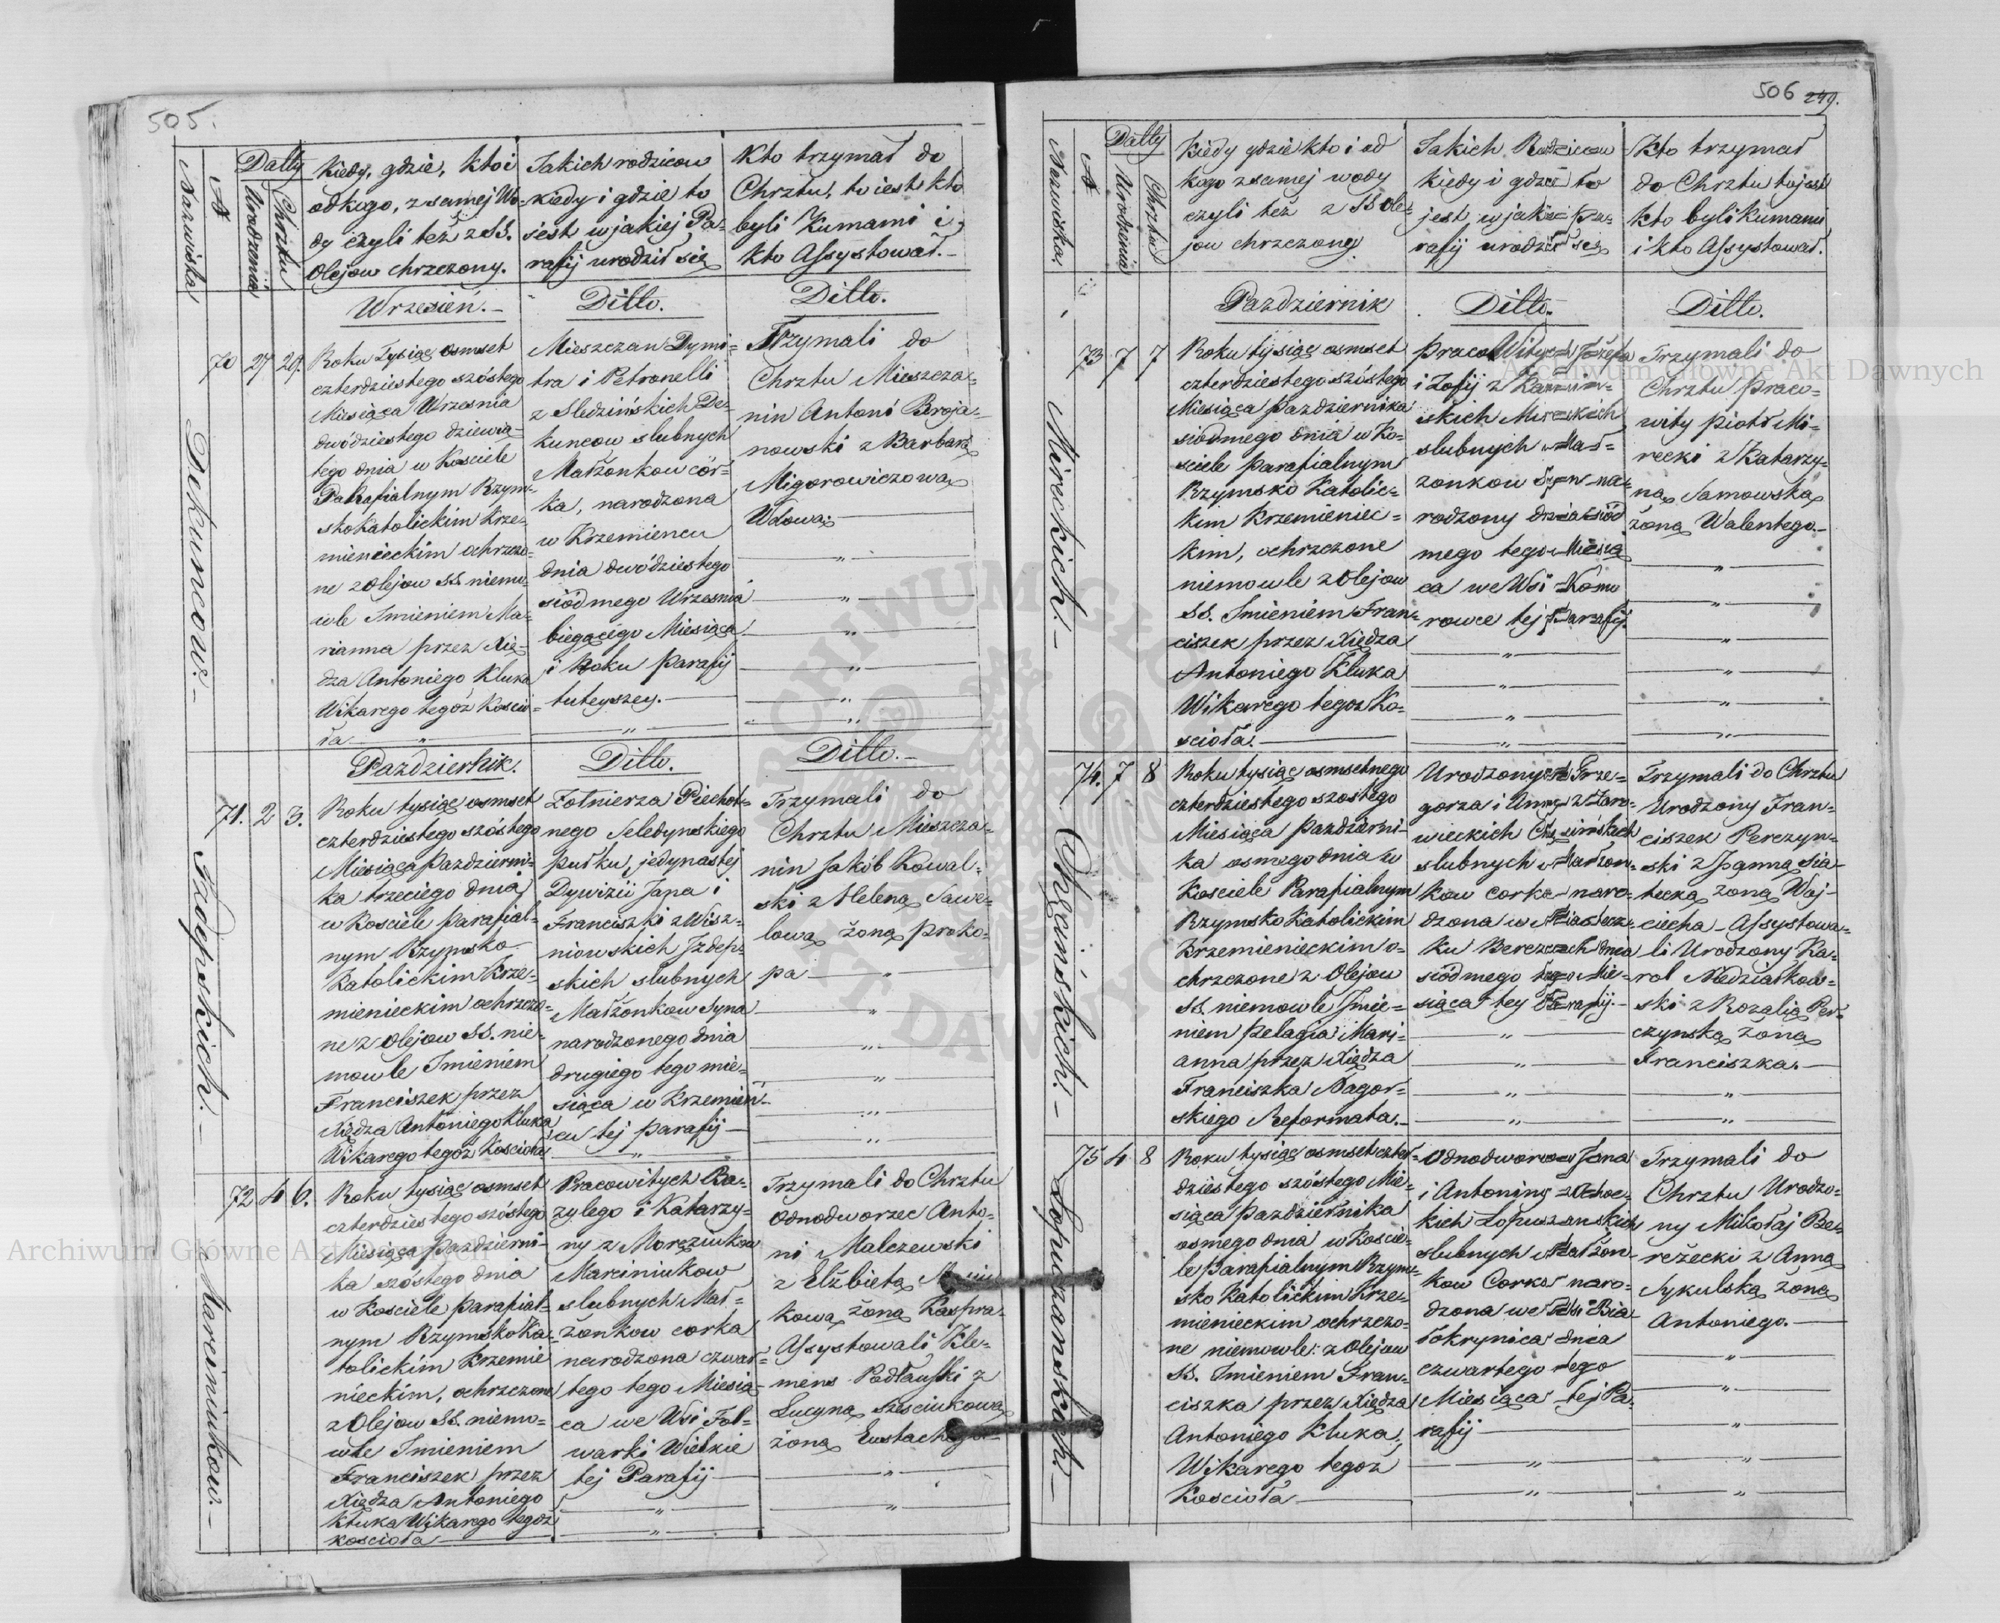 505.
Nazwiska
N
Datty
Urodzenia
Chrztu
Kiedy, gdzie, kto i
od kogo, z samej Wo-
dy czyli też z SS.
Olejow chrzczony.
Jakich rodzicow
kiedy i gdzie to
jest w jakiej Pa-
rafij urodził się
Kto trzymał do
Chrztu, to iest kto
byli Kumami i
kto Assystował.
Wrzesień.
Ditto.
Ditto.
Dikuncow.
70 27 29.
Roku Tysiąc osmset
czterdziestego szóstego
Miesiąca Wrzesnia
dwódziestego dziewią-
tego dnia w Kosciele
Parafialnym Rzym-
skokatolickim Krze-
mienieckim ochrzczo-
ne z Olejow SS. niemo-
wle Imieniem Ma-
rianna przez Xię-
dza Antoniego Kluka
Wikarego tegóż Kościo-
ła
Mieszczan Dymi-
tra i Petronelli
z Sledzińskich De-
kuncow slubnych
Małżonkow cór-
ka, narodzona
w Krzemiencu
dnia dwódziestego
siódmego Wrzesnia
biegącego Miesiąca
i Roku parafij
tuteyszey.
Trzymali do
Chrztu Mieszcza-
nin Antoni Broja-
nowski z Barbarą
Migorowiczową
Wdową
Pazdziernik.
Ditto.
Ditto.
Izdepskich.
71. 2 3.
Roku tysiąc osmset
czterdziestego szóstego
Miesiąca Pazdzierni-
ka trzeciego dnia
w Kosciele parafial-
nym Rzymsko
Katolickim Krze-
mienieckim ochrzczo-
ne z Olejow SS. nie-
mowle Imieniem
Franciszek przez
Xiędza Antoniego Kluka
Wikarego tegóż Kościoła
Żołnierza Piechot-
nego Seledynskiego
pułku, jedynastej
Dywizii Jana i
Franciszki z Wisz-
niowskich Izdep-
skich slubnych
Małżonkow Syna
narodzonego dnia
drugiego tego mie-
siąca w Krzemień-
cu tej parafij
Trzymali do
Chrztu Mieszcza-
nin Jakób Kowal-
ski z Heleną Sawe-
lową żoną proko-
pa
Marciniukow.
72 4 6.
Roku tysiąc osmset
czterdziestego szóstego
Miesiąca pazdzierni-
ka szóstego dnia
w Kosciele parafial-
nym Rzymsko Ka-
tolickim Krzemie
nieckim, ochrzczone
z Olejow SS. niemo-
wle Imieniem
Franciszek przez
Xiędza Antoniego
Kluka Wikarego tegoż
kosciola
Pracowitych Ba-
zylego i Katarzy-
ny z Moręziukow
Marciniukow
slubnych Mał-
żonkow corka
narodzona czwar-
tego tego Miesią-
ca we Wsi Fol-
warki Wielkie
tej Parafij
Trzymali do Chrztu
Odnodworzec Anto-
ni Malczewski
z Elżbietą
kową żoną Kaspra
Assystowali Kle-
mens Podłauski z
Lucyną Szesciukową
żoną Eustachego
506 249.
Nazwiska
N
Datty
Urodzenia
Chrztu
Kiedy gdzie kto i od
kogo z samej wody
czyli też z SS Ole-
jow chrzczony
Jakich Rodzicow
kiedy i gdzie to
jest w jakiej pa-
rafij urodził się
Kto trzymał
do Chrztu to jest
kto byli kumami
i kto Assystował.
Pazdziernik
Ditto.
Ditto.
Mireckich.
73 7 7
Roku tysiąc osmset
czterdziestego szóstego
Miesiąca pazdziernika
siódmego dnia w Ko-
sciele parafialnym
Rzymsko Katolic-
kim Krzemieniec-
kim, ochrzczone
niemowle z Olejow
SS. Imieniem Fran-
ciszek przez Xiędza
Antoniego Kluka
Wikarego tegoż Ko-
scioła.
Pracowitych Jozefa
i Zofij z
skich Mireckich
slubnych Mał-
żonkow Syn na-
rodzony dnia siód
mego tego Miesią
ca we Wsi Komo
rowce tej Parafij.
Trzymali do
Chrztu praco-
wity piotr Mi-
recki z Katarzy-
ną Samowską
żoną Walentego
Chęcińskich.
74. 7 8
Roku tysiąc osmsetnego
czterdziestego szostego
Miesiąca pazdzierni-
ka osmego dnia w
Kosciele Parafialnym
Rzymsko Katolickim
Krzemienieckim o-
chrzczone z Olejow
SS. niemowle Imie-
niem pelagia Mari-
anna przez Xiędza
Franciszka Nagor-
skiego Reformata.
Urodzonych Grze-
gorza i Anny z Zaro-
wieckich Chęcińskich
slubnych Małżon-
kow corka naro-
dzona w Miastecz-
ku Bereżcach dnia
siódmego tego Mie-
siąca tey Parafij.
Trzymali do Chrztu
Urodzony Fran-
ciszek Perczyn-
ski z Joanną Sia-
tecką żoną Woj-
ciecha Assystowa-
li Urodzony Ka-
rol Niedziałkow-
ski z Rozalią Per-
czynską żoną
Franciszka.
Łopuszanskich.
75 4 8
Roku tysiąc osmset czter-
dziestego szóstego Mie-
siąca pazdziernika
osmego dnia w Koscie-
le parafialnym Rzym-
sko Katolickim Krze-
mienieckim ochrzczo-
ne niemowle: z Olejow
SS. Imieniem Fran-
ciszka przez Xiędza
Antoniego Kluka,
Wikarego tegoż
Koscioła
Odnodworcow Jana
i Antoniny
kich Łopuszanskich
slubnych Małżon-
kow Corka naro-
dzona we Wsi Bia-
łokrynica dnia
czwartego tego
Miesiąca tej Pa-
rafij
Trzymali do
Chrztu Urodzo-
ny Mikołaj Be-
reżecki z Anną
Sykulską żoną
Antoniego.
Archiwum Główne Akt Dawnych
Archiwum Główne Akt
ARCHIWUM GŁÓWNE AKT DAWNYCH